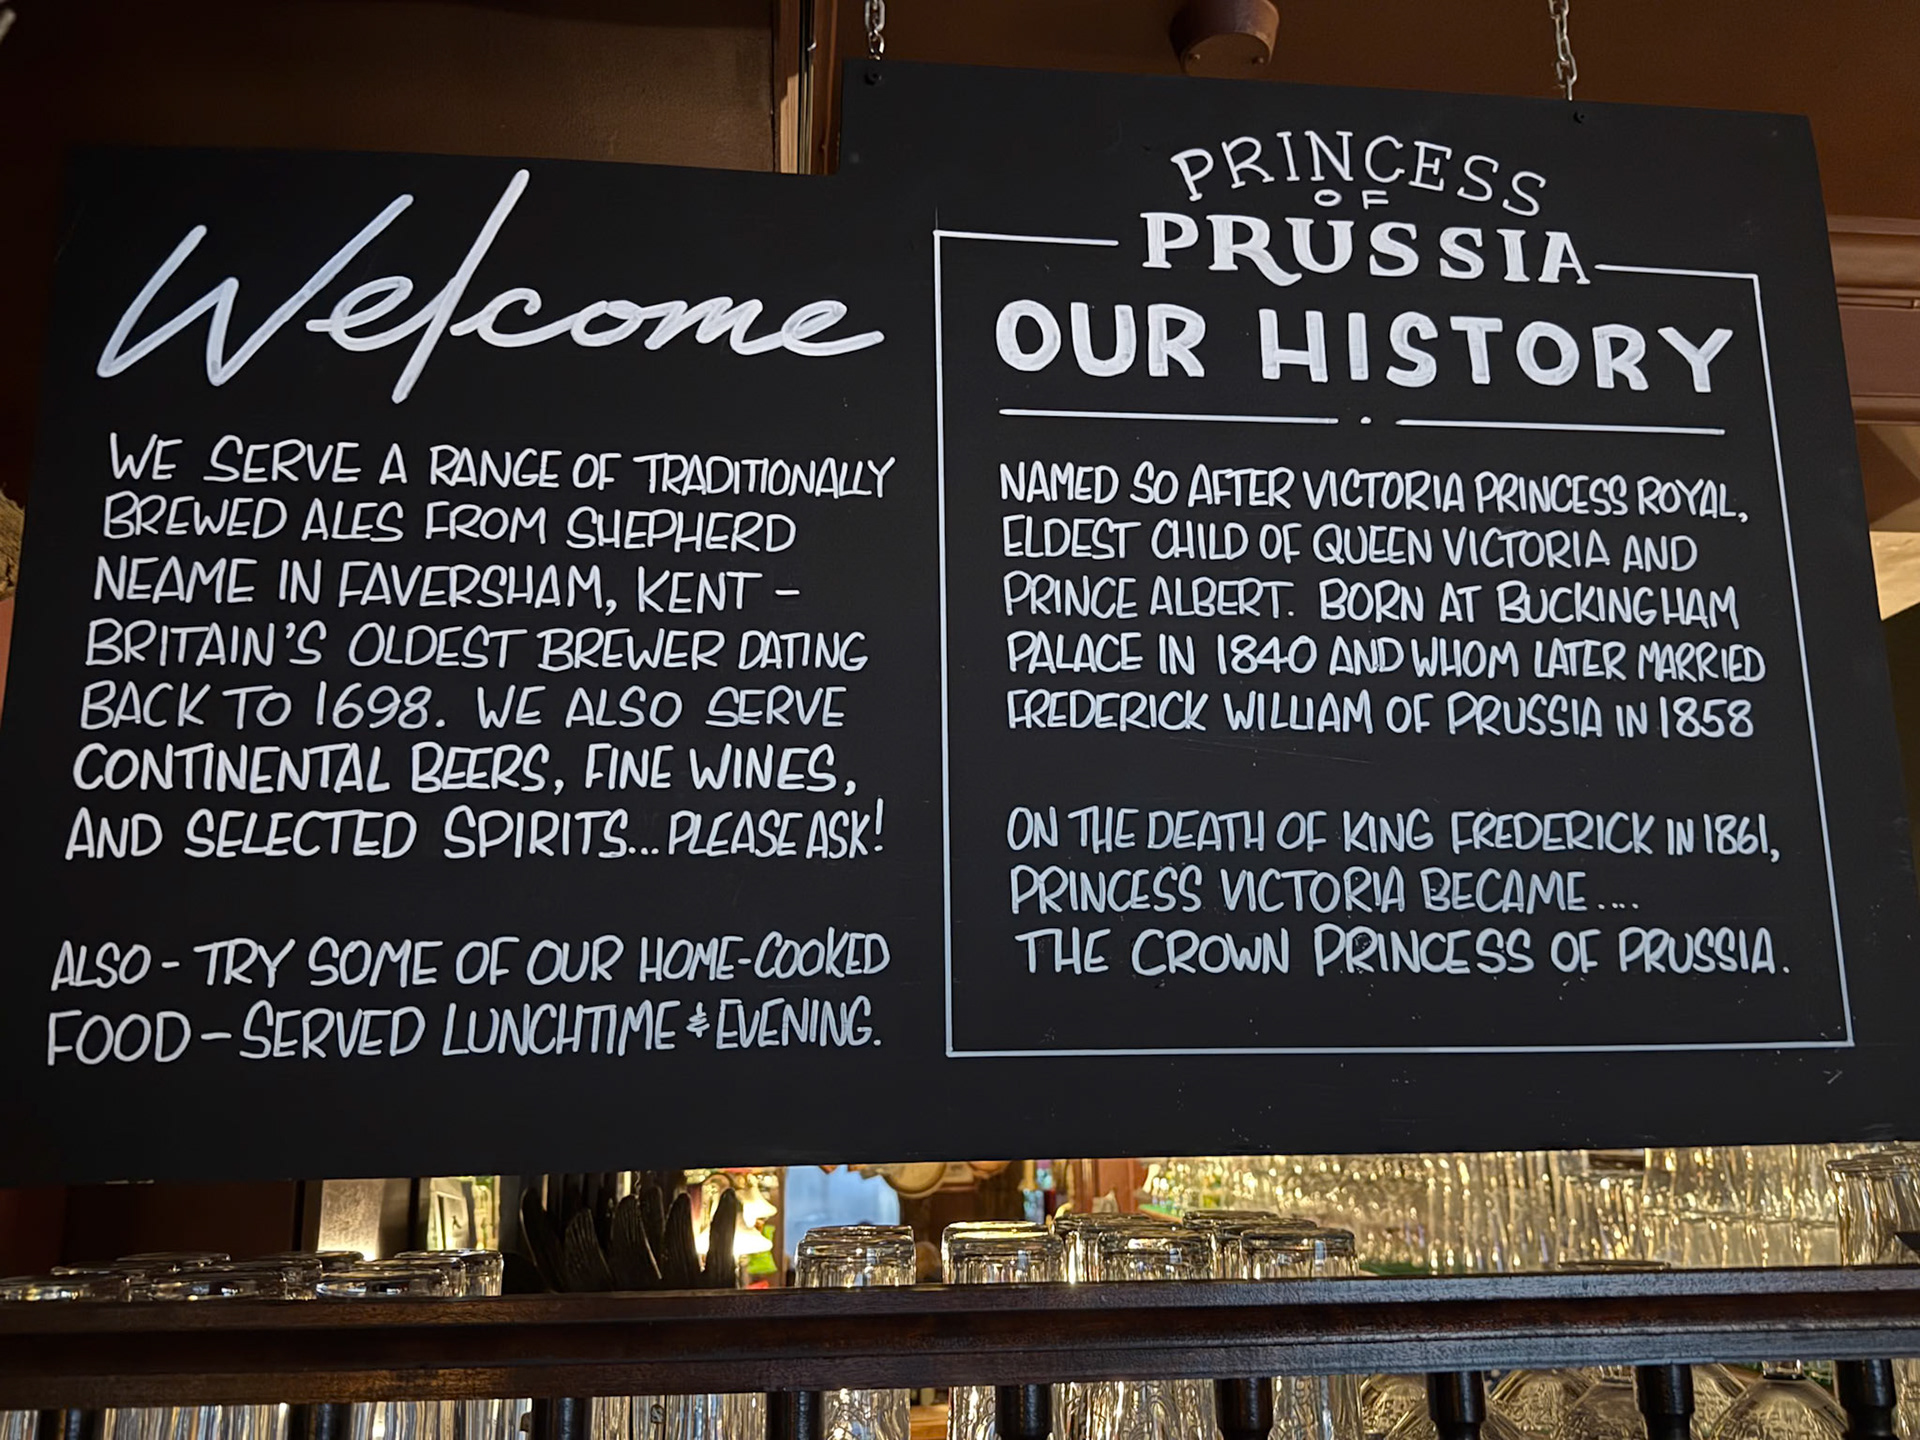 Welcome
WE SERVE A RANGE OF TRADITIONALLY
BREWED ALES FROM SHEPHERD
NEAME IN FAVERSHAM, KENT -
BRITAIN'S OLDEST BREWER DATING
BACK TO 1698. WE ALSO SERVE
CONTINENTAL BEERS, FINE WINES,
AND SELECTED SPIRITS... PLEASE ASK!
ALSO - TRY SOME OF OUR HOME-COOKED
FOOD - SERVED LUNCHTIME & EVENING.
PRINCESS
OF
PRUSSIA
OUR HISTORY
NAMED SO AFTER VICTORIA PRINCESS ROYAL,
ELDEST CHILD OF QUEEN VICTORIA AND
PRINCE ALBERT. BORN AT BUCKINGHAM
PALACE IN 1840 AND WHOM LATER MARRIED
FREDERICK WILLIAM OF PRUSSIA IN 1858
ON THE DEATH OF KING FREDERICK IN 1861,
PRINCESS VICTORIA BECAME....
THE CROWN PRINCESS OF PRUSSIA.